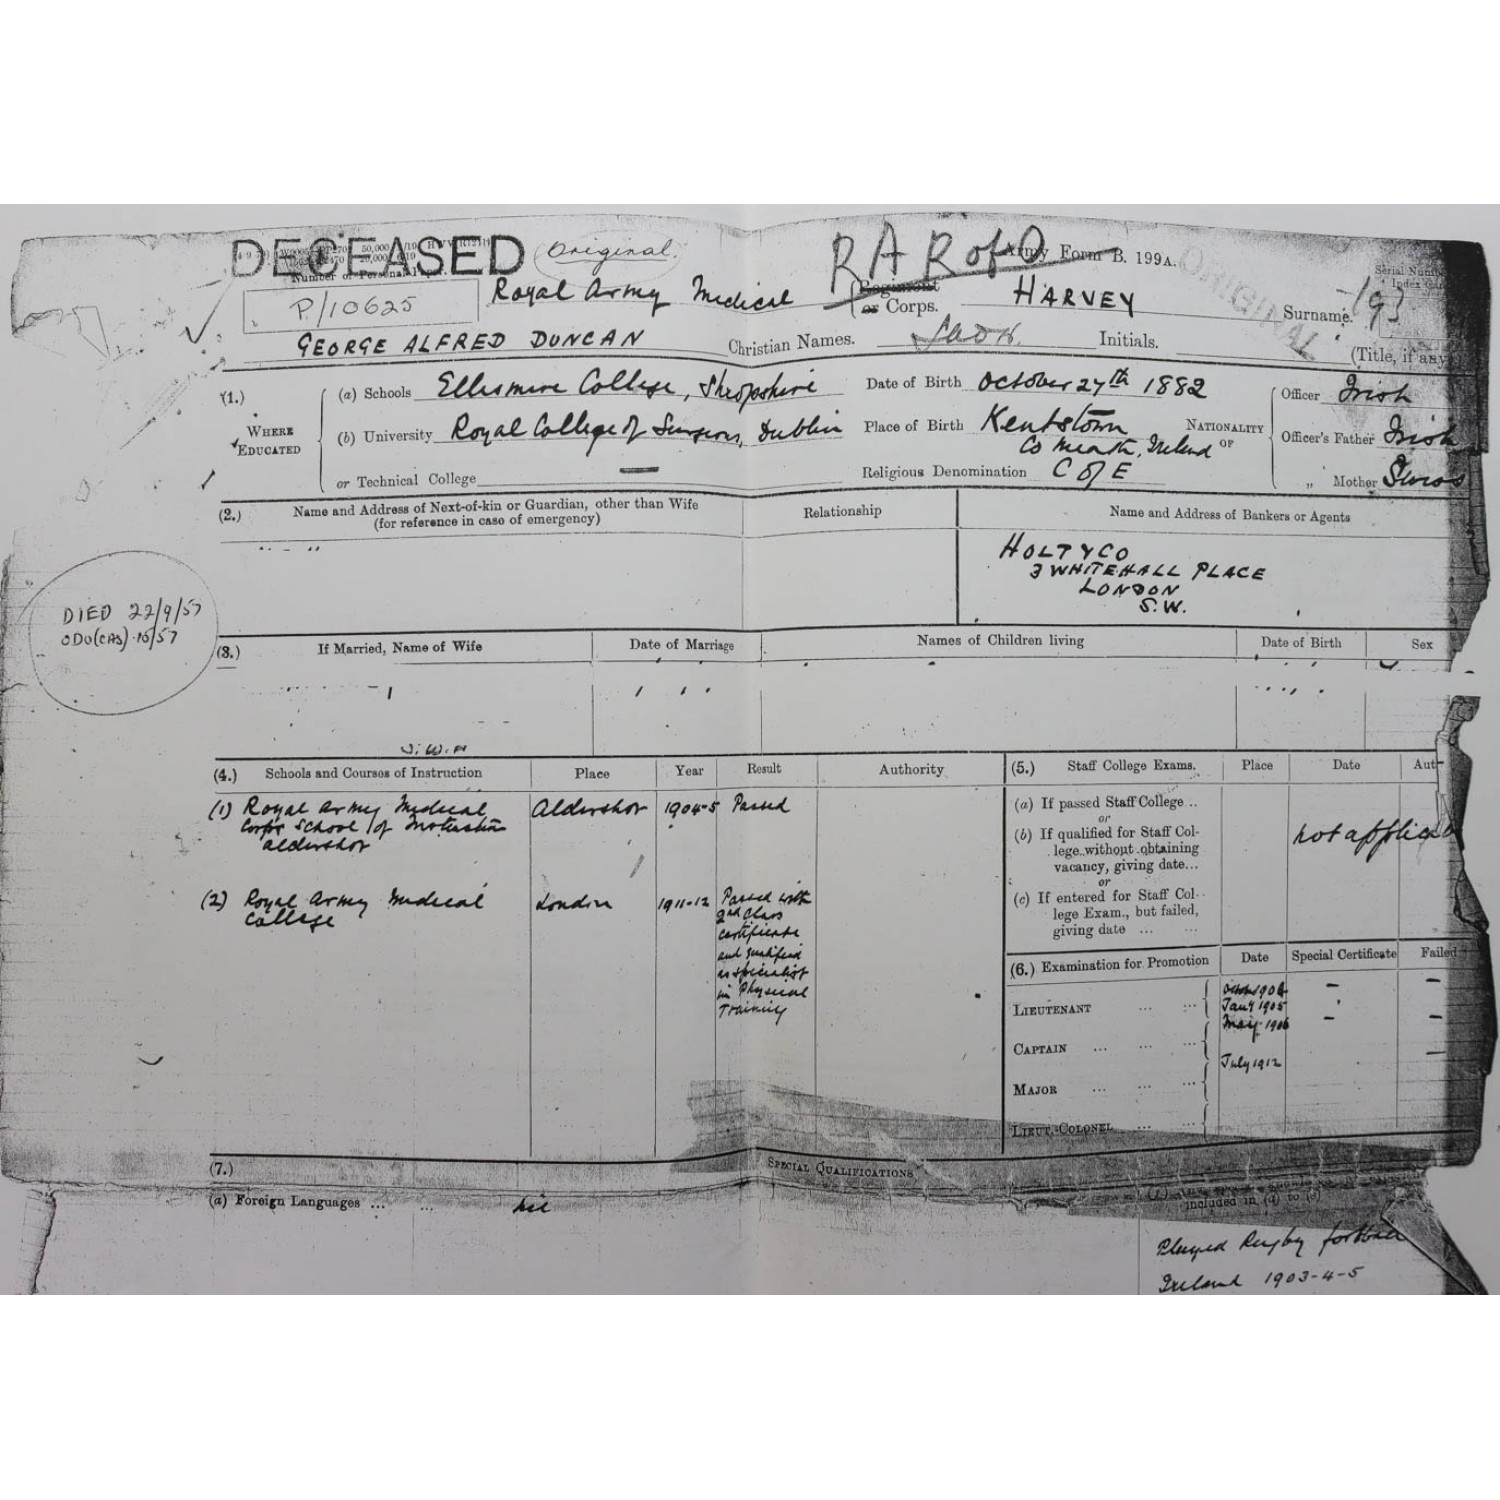 DECEASED
Original.
R A R of O
Army Form B. 199A.
ORIGINAL
Number of Personal
Serial Num
P/10625
Royal Army Medical
Regiment
or Corps.
HARVEY
Surname.
GEORGE ALFRED DUNCAN
Christian Names.
Initials.
(Title, if any
(1.)
WHERE
EDUCATED
(a) Schools Ellesmere College, Shropshire
Date of Birth October 27th 1882
Officer Irish
(b) University Royal College of Surgeons, Dublin
Place of Birth Kentstown
Co Meath, Ireland
NATIONALITY
OF
Officer's Father Irish
or Technical College —
Religious Denomination C of E
„ Mother Swiss
(2.)
Name and Address of Next-of-kin or Guardian, other than Wife
(for reference in case of emergency)
Relationship
Name and Address of Bankers or Agents
HOLT & CO
3 WHITEHALL PLACE
LONDON
S.W.
DIED 22/9/57
ODO(CAS) 10/57
(3.)
If Married, Name of Wife
Date of Marriage
Names of Children living
Date of Birth
Sex
(4.)
Schools and Courses of Instruction
Place
Year
Result
Authority
(1) Royal Army Medical
Corps School of Instruction
Aldershot
Aldershot
1904-5
Passed
(2) Royal Army Medical
College
London
1911-12
Passed with
2nd Class
certificate
and qualified
as specialist
in Physical
Training
(5.)
Staff College Exams.
Place
Date
Aut
(a) If passed Staff College...
or
(b) If qualified for Staff Col-
lege without obtaining
vacancy, giving date...
or
(c) If entered for Staff Col-
lege Exam., but failed,
giving date ... ...
not applica
(6.) Examination for Promotion
Date
Special Certificate
Failed
LIEUTENANT ... ...
Jany 1905
May 1906
CAPTAIN ... ... ...
July 1912
MAJOR ... ... ...
LIEUT.-COLONEL ... ...
(7.)
SPECIAL QUALIFICATIONS
(a) Foreign Languages ... ...
nil
included in (a) to (e)
Played Rugby football
Ireland 1903-4-5